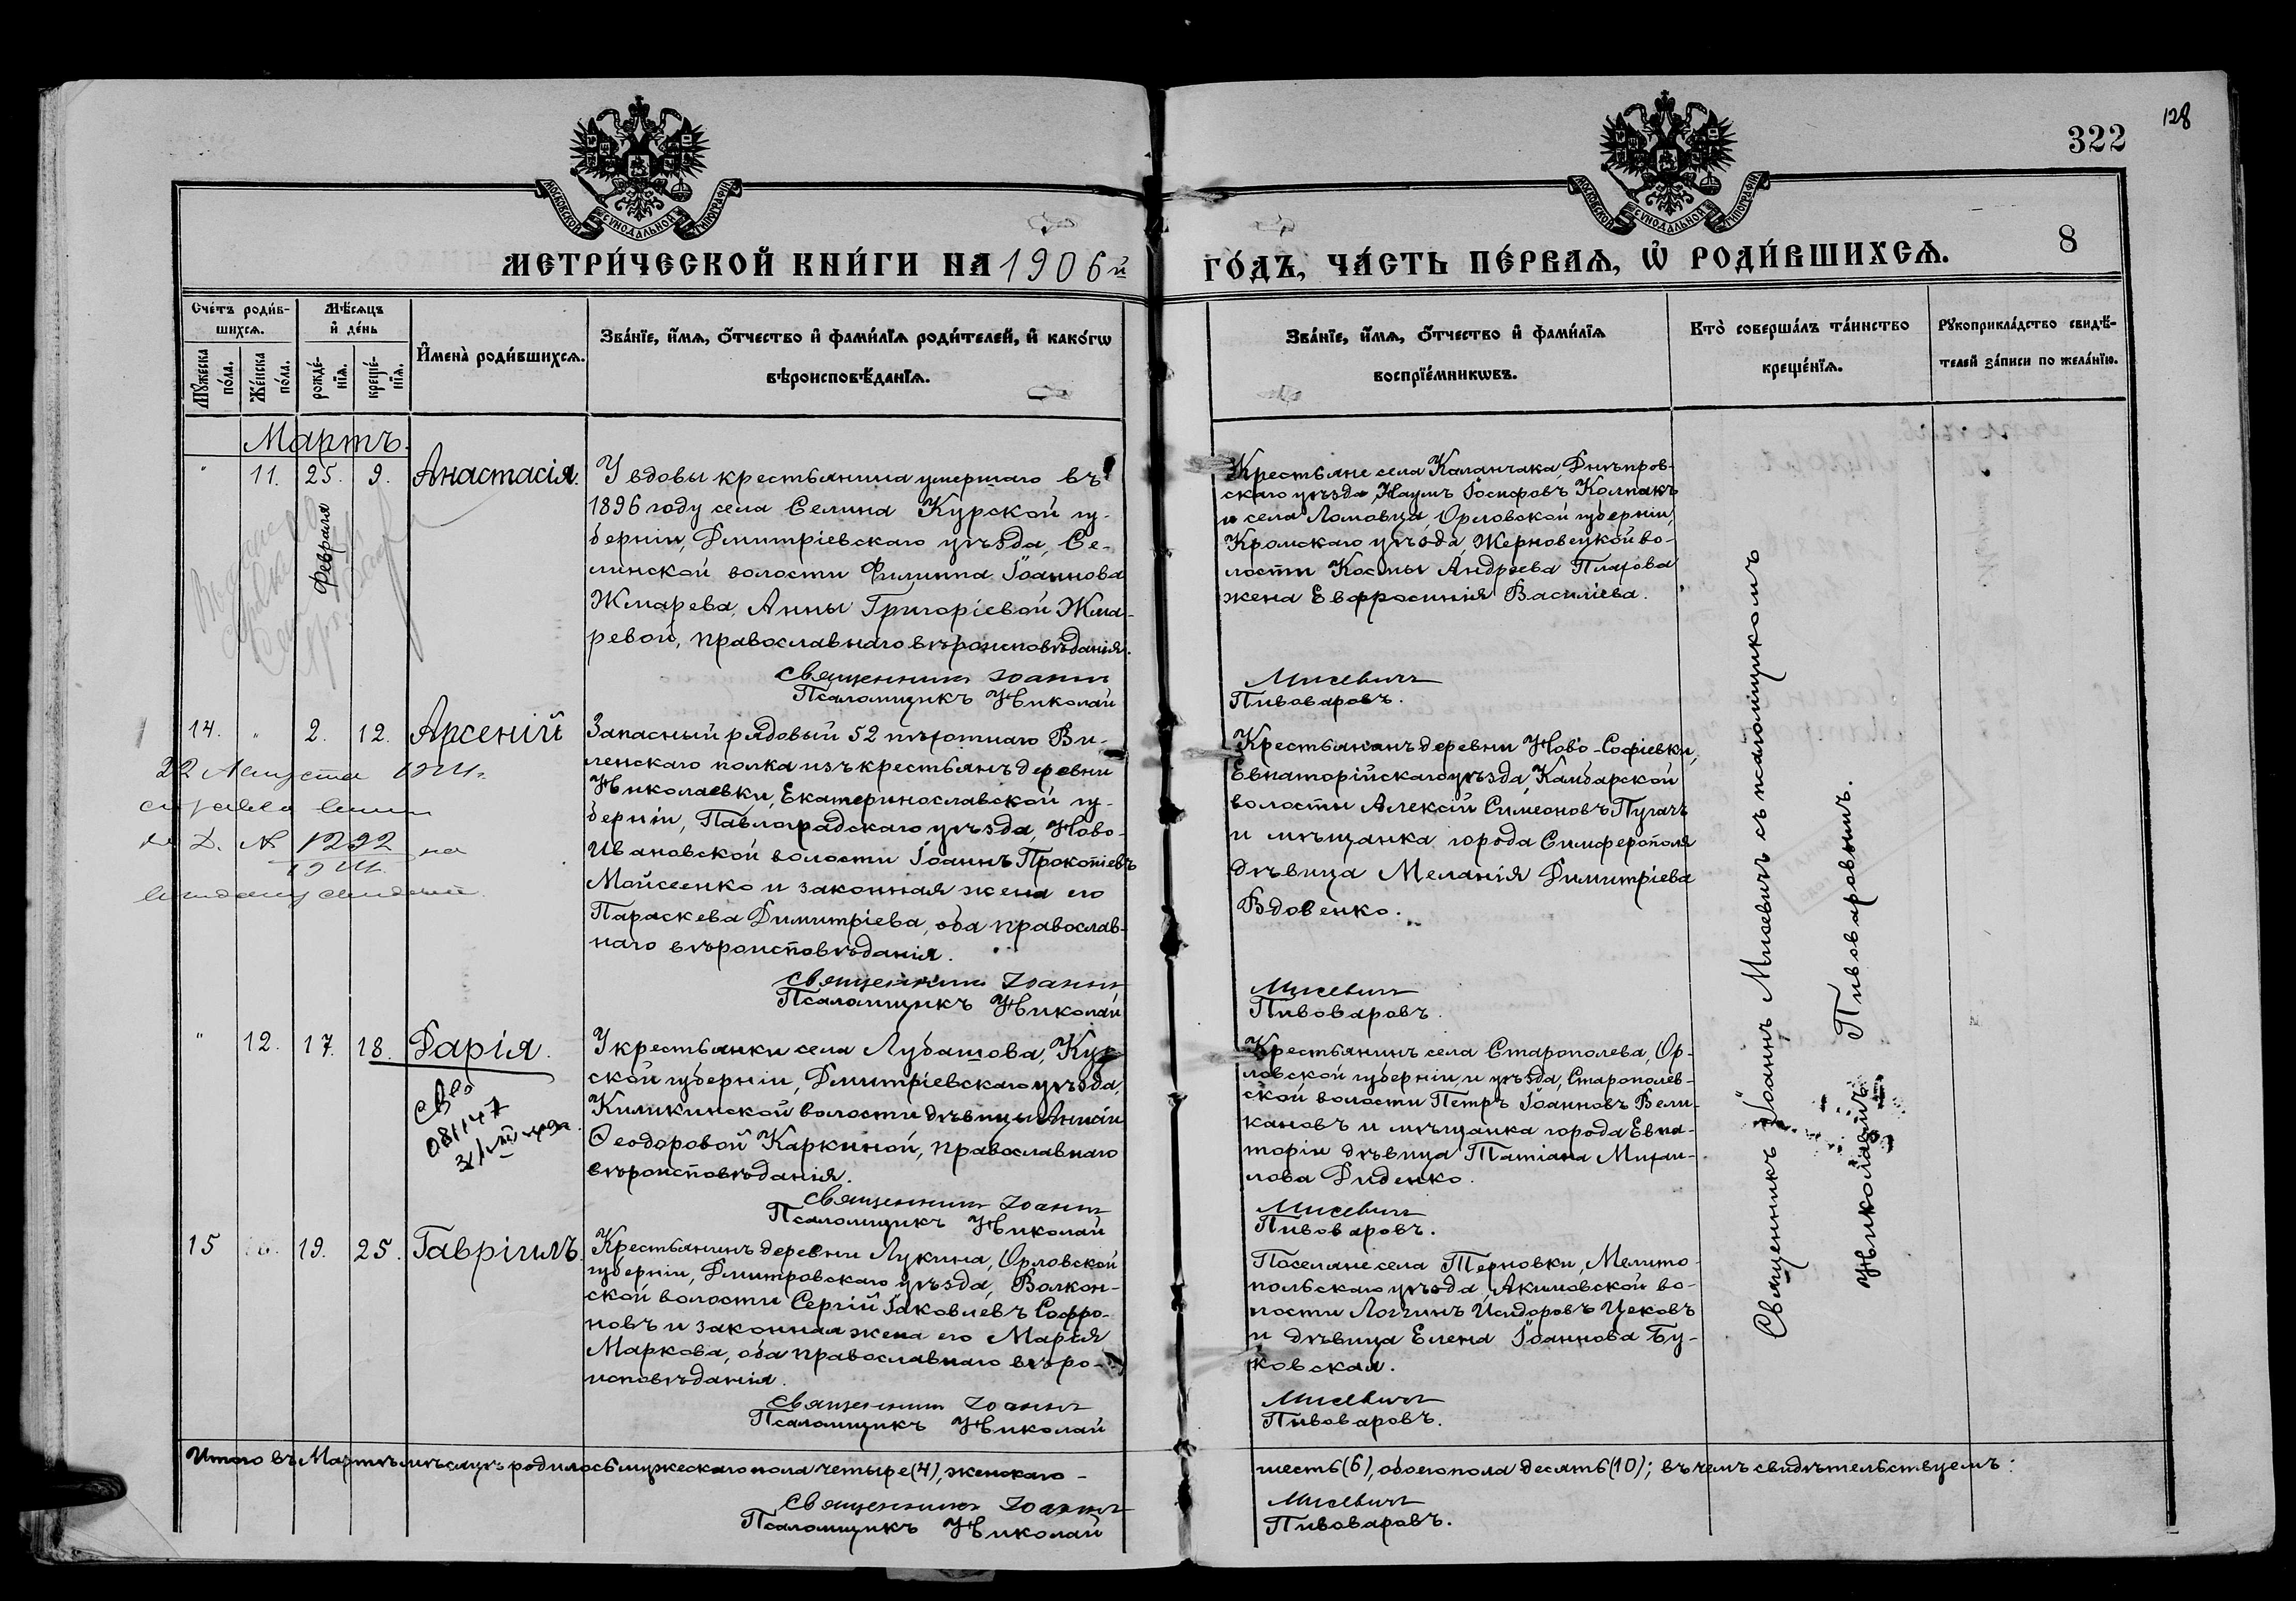 128
322
8
МОСКОВСКОЙ СѴНОДАЛЬНОЙ ТИПОГРАФІИ
МОСКОВСКОЙ СѴНОДАЛЬНОЙ ТИПОГРАФІИ
МЕТРИ́ЧЕСКОЙ КНИ́ГИ НА 1906й
ГО́ДЪ, ЧА́СТЬ ПЕ́РВАѦ, Ѡ҆ РОДИ́ВШИХСѦ.
Сче́тъ роди́в-
шихсѧ.
Мѣ́сѧцъ
и҆ де́нь
Мꙋ́жеска
по́ла.
Же́нска
по́ла.
рожде́-
нїѧ.
креще́-
нїѧ.
И҆мена̀ роди́вшихсѧ.
Зва́нїе, и҆́мѧ, ѻ҆́тчество и҆ фами́лїѧ роди́телей, и҆ како́гѡ
вѣроисповѣ́данїѧ.
Зва́нїе, и҆́мѧ, ѻ҆́тчество и҆ фами́лїѧ
воспрїе́мникѡвъ.
Кто̀ соверша́лъ та́инство
креще́нїѧ.
Рꙋкоприкла́дство свидѣ́-
телей за́писи по жела́нїю.
Мартъ.
" 11. 25. 9. Анастасія.
Февраля
У вдовы крестьянина умершаго въ
1896 году села Селина Курской гу-
берніи, Дмитріевскаго уѣзда, Се-
линской волости Филиппа Іоаннова
Жмарева, Анны Григоріевой Жма-
ревой, православнаго вѣроисповѣданія.
Священникъ Іоаннъ
Псаломщикъ Николай
Крестьяне села Каланчака, Днѣпров-
скаго уѣзда, Наумъ Іосифовъ Колпакъ
и села Ломовца, Орловской губерніи,
Кромскаго уѣзда, Жерновецкой во-
лости Космы Андреева Платова
жена Евфросинія Василіева.
Мисевичъ
Пивоваровъ.
14. " 2. 12. Арсеній
22 Августа
справка
№ 1292 на
Запасный рядовый 52 пѣхотнаго Ви-
ленскаго полка изъ крестьянъ деревни
Николаевки, Екатеринославской гу-
берніи, Павлоградскаго уѣзда, Ново-
Ивановской волости Іоаннъ Прокопіевъ
Мойсеенко и законная жена его
Параскева Димитріева, оба православ-
наго вѣроисповѣданія.
Священникъ Іоаннъ
Псаломщикъ Николай
Крестьянинъ деревни Ново-Софіевки,
Евпаторійскаго уѣзда, Камбарской
волости Алексій Симеоновъ Пугачъ
и мѣщанка города Симферополя
дѣвица Меланія Димитріева
Вдовенко.
Мисевичъ
Пивоваровъ.
" 12. 17. 18. Дарія.
081147
У крестьянки села Лубашова, Кур-
ской губерніи, Дмитріевскаго уѣзда,
Киликинской волости дѣвицы Анисіи
Ѳеодоровой Каркиной, православнаго
вѣроисповѣданія.
Священникъ Іоаннъ
Псаломщикъ Николай
Крестьянинъ села Старополева, Ор-
ловской губерніи и уѣзда, Старополев-
ской волости Петръ Іоанновъ Вели-
кановъ и мѣщанка города Евпа-
торіи дѣвица Татіана Михаи-
лова Диденко.
Мисевичъ
Пивоваровъ.
15 19. 25. Гавріилъ.
Крестьянинъ деревни Лукина, Орловской
губерніи, Дмитровскаго уѣзда, Волкон-
ской волости Сергій Іаковлевъ Софро-
новъ и законная жена его Марія
Маркова, оба православнаго вѣро-
исповѣданія.
Священникъ Іоаннъ
Псаломщикъ Николай
Поселяне села Терновки, Мелито-
польскаго уѣзда, Акимовской во-
лости Логгинъ Исидоровъ Цековъ
и дѣвица Елена Іоаннова Бу-
ковская.
Мисевичъ
Пивоваровъ.
Священникъ Іоаннъ Мисевичъ съ псаломщикомъ
Николаемъ Пивоваровымъ.
Итого въ Мартѣ мѣсяцѣ родилось мужескаго пола четыре (4), женскаго -
шесть (6), обоего пола десять (10); въ чемъ свидѣтельствуемъ:
Священникъ Іоаннъ
Псаломщикъ Николай
Мисевичъ
Пивоваровъ.